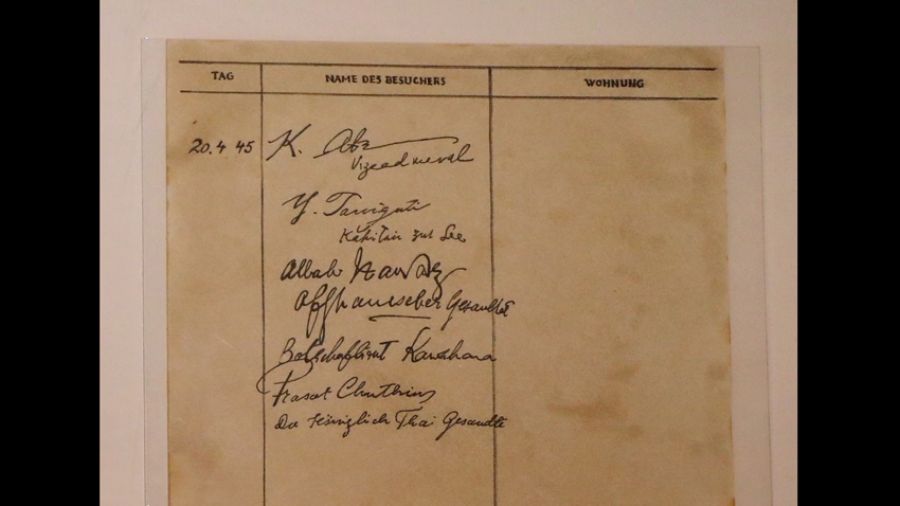 TAG NAME DES BESUCHERS WOHNUNG
20.4 45 K. Abe
Vizeadmeral
Y. Taniguti
Kapitän zur See
Allah Nawaz
Afghanischer Gesandte
Botschaftsrat Kawahara
Prasat Chuthin
Der Königlich Thai Gesandte